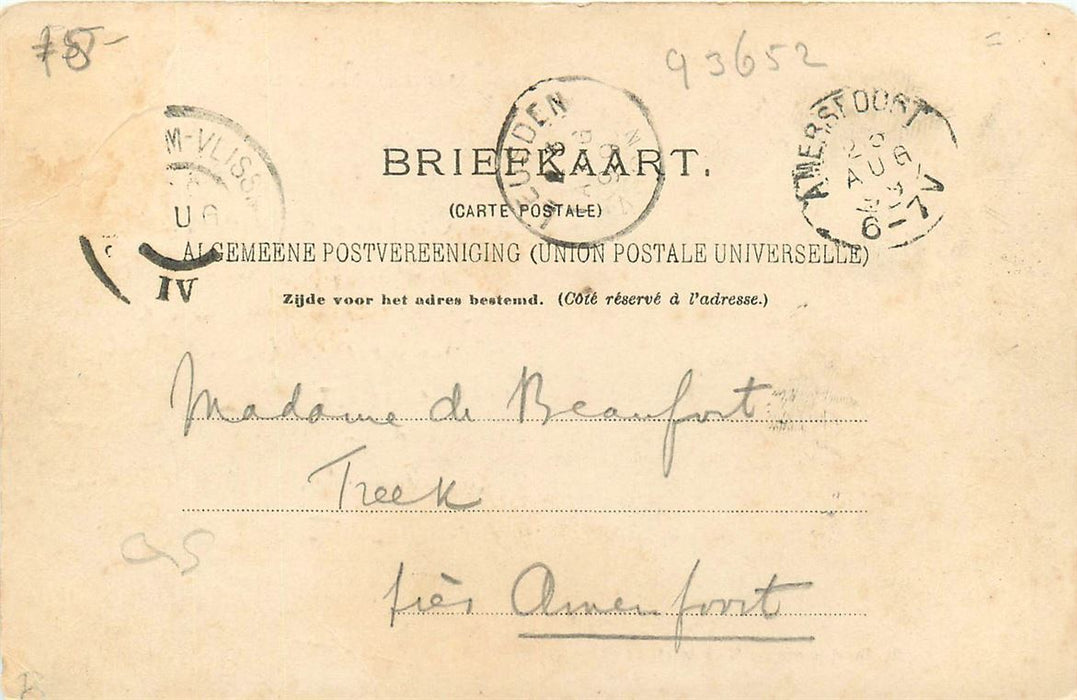 75-
93652
M-VLISS
UG
IV
LEUSDEN
AMERSFOORT
AUG
6-7V
BRIEFKAART.
(CARTE POSTALE)
ALGEMEENE POSTVEREENIGING (UNION POSTALE UNIVERSELLE)
Zijde voor het adres bestemd. (Côté réservé à l'adresse.)
Madame de Beaufort
Treek
près Amersfoort